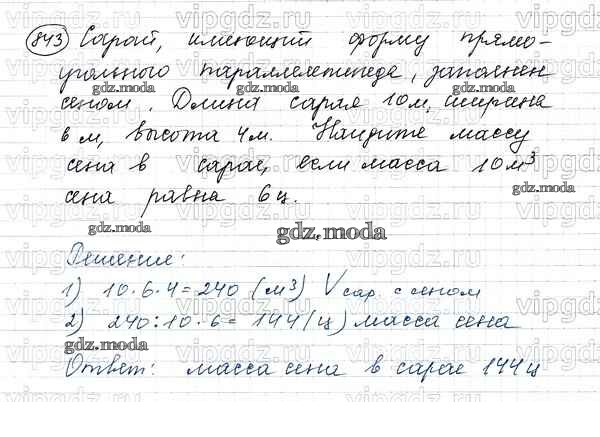 843 Сарай, имеющий форму прямо-
угольного параллелепипеда, заполнен
сеном. Длина сарая 10 м, ширина
6 м, высота 4 м. Найдите массу
сена в сарае, если масса 10 м³
сена равна 6 ц.
gdz.moda
Решение:
1) 10 · 6 · 4 = 240 (м³) V сар. с сеном
2) 240 : 10 · 6 = 144 (ц) масса сена
gdz.moda
Ответ: масса сена в сарае 144 ц
vipgdz.ru